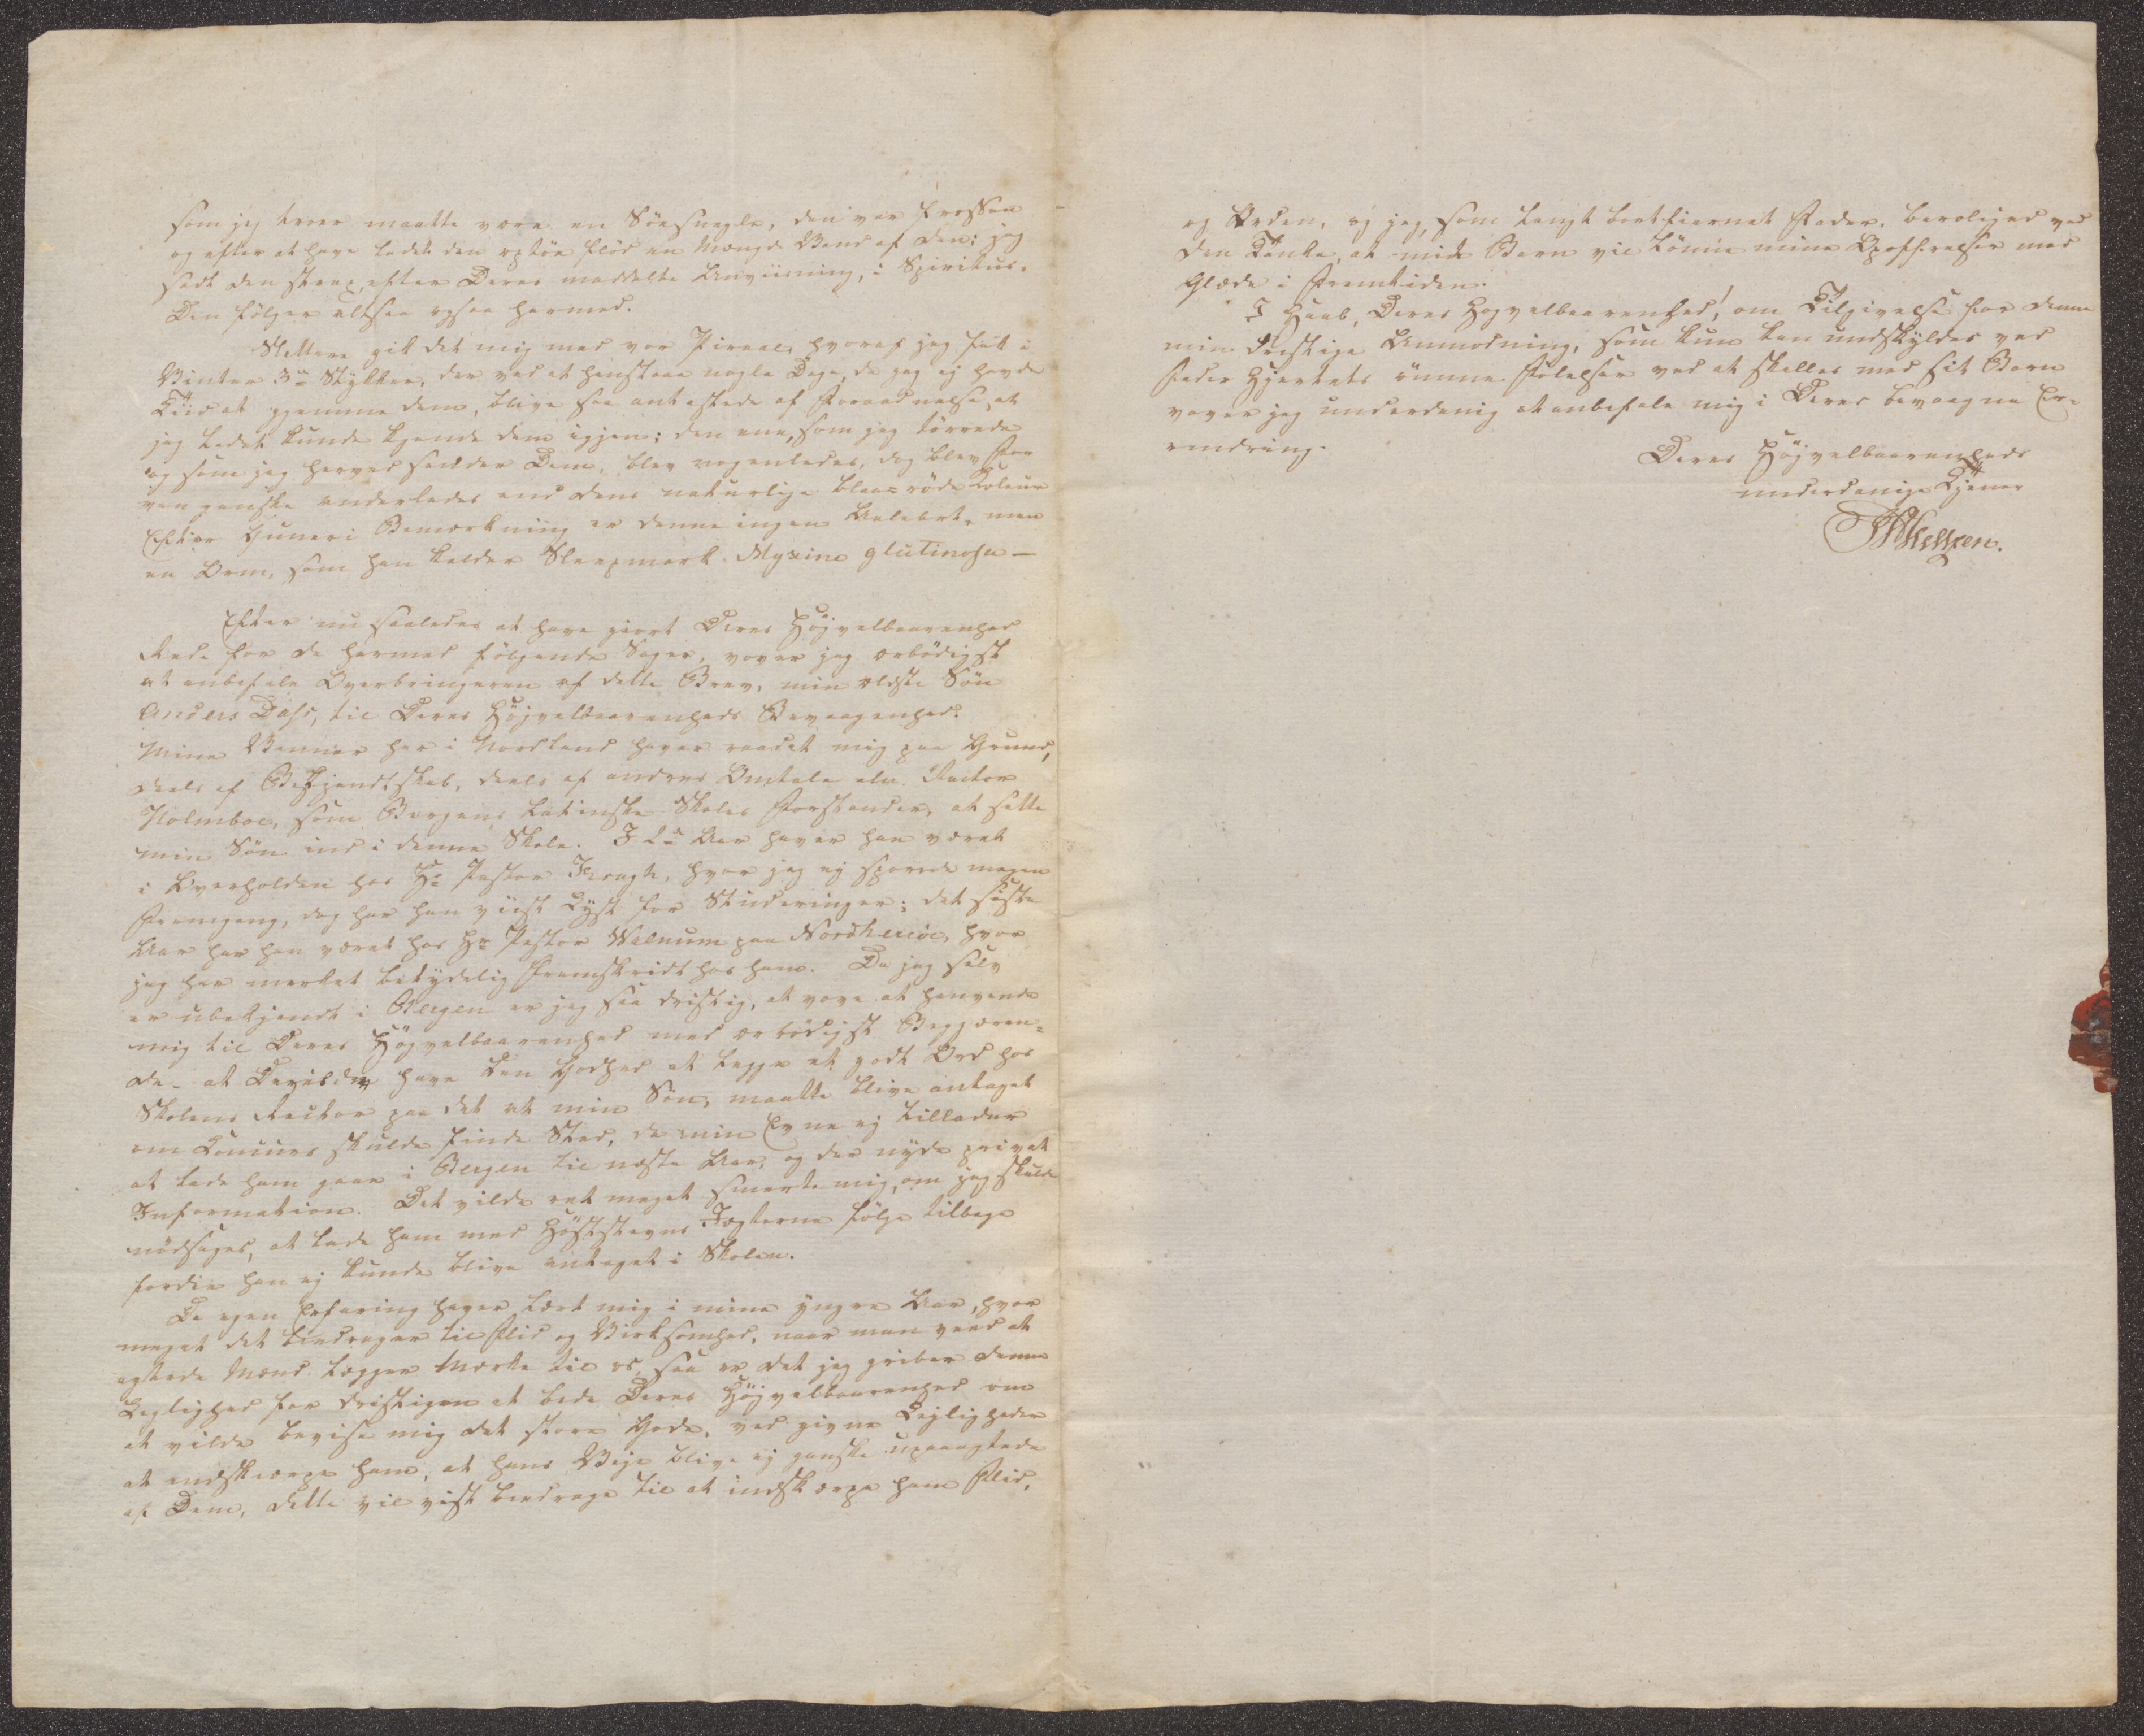 som jeg troer maatte være en Söesnegle, den var frossen
og efter at have ladet den optöe flöd en Mængde Vand af den; jeg
sadt den strax, efter Deres meddelte Anviisning, i Spiritus.
Den fölger altsaa ogsaa hermed.
Slettere gik det mig med vor Piraal, hvoraf jeg fik i
Vinter 3de Stykker, der ved at henstaae nogle Dage, da jeg ej havde
Tiid at gjemme dem, blive saa antastede af Forraadnelse, at
jeg ledet kunde kjende dem igjen; den ene, som jeg törrede
og som jeg herved sender Dem, blev nogenledes, dog blev Far
ven ganske anderledes end dens naturlige blaae-röde Coleur
Efter Guneri Bemærkniing er denne ingen Aaleart, men
en Orm, som han kalder Sleepmark. Myxine glutinosa —
Efter nu saaledes at have giort Deres Höjvelbaarenhed
Rede for de hermed fölgende Sager, vover jeg ærbödigst
at anbefale Overbringeren af dette Brev, min ældste Sön
Anders Dass, til Deres Höjvelbaarenheds Bevaagenhed.
Mine Venner her i Nordland haver raadet mig paa Grund,
deels af Bekjendtskab, deels af andres Omtale aln. Rector
Holmboe, som Bergens Latinske Skoles Forstander, at sætte
min Sön ind i denne Skole. I 2de Aar haver han været
i Overholden hos Hr Pastor Krogh, hvor jeg ej sporede megen
Fremgang, dog har han viist Lyst for Studeringer; det sidste
Aar har han været hos Hr Pastor Walnum paa Nordheröe, hvor
jeg har mærket betydelig Fremskridt hos ham. Da jeg selv
er ubekjendt i Bergen er jeg saa dristig, at vove at henvende
mig til Deres Höjvelbaarenhed med ærbödigst Begjæren-
de- at De vilde have den Godhed at legge et godt Ord hos
Skolens Rector paa det at min Sön, maatte blive antaget
om Concurs skulde finde Sted, da min Evne ej tillader
at lade ham gaae i Bergen til næste Aar, og der nyde privat
Information. Det vilde ret meget smerte mig, om jeg skulde
nödsages, at lade ham med Höststevns Jægterne fölge tilbage
fordie han ej kunde blive antaget i Skolen.
Da egen Erfaring haver lært mig i mine yngre Aar, hvor
meget det bindrager til Flid og Virksomhed, naar man veed at
agtede Mænd lægger Mærke til os, saa er det jeg griber denne
Leglighed for dristigen at bede Deres Höjvelbaarenhed om
at vilde bevise mig det store Gode, ved givne Lejligheder
at indskærpe ham, at hans Veje blive ej ganske upaaagtede
af Dem, dette vil vist bindrage til at indskærpe ham Flid,
og Orden, og jeg, som langt bortfiernet Fader, beroliges ved
den Tanke, at mit Barn vil lönne mine Opoffrelser med
Glæde i Fremtiden.
I Haab, Deres Höjvelbaarenhed! om Tilgivelse for denne
min dristige Anmodning, som kun kan undskyldes ved
Fader Hjertets ömme Fölelser ved at skilles med sit Barn
vover jeg underdanig at anbefale mig i Deres bevaagne Er-
rindring.
Deres Höjvelbaarenheds
underdanige Tjener